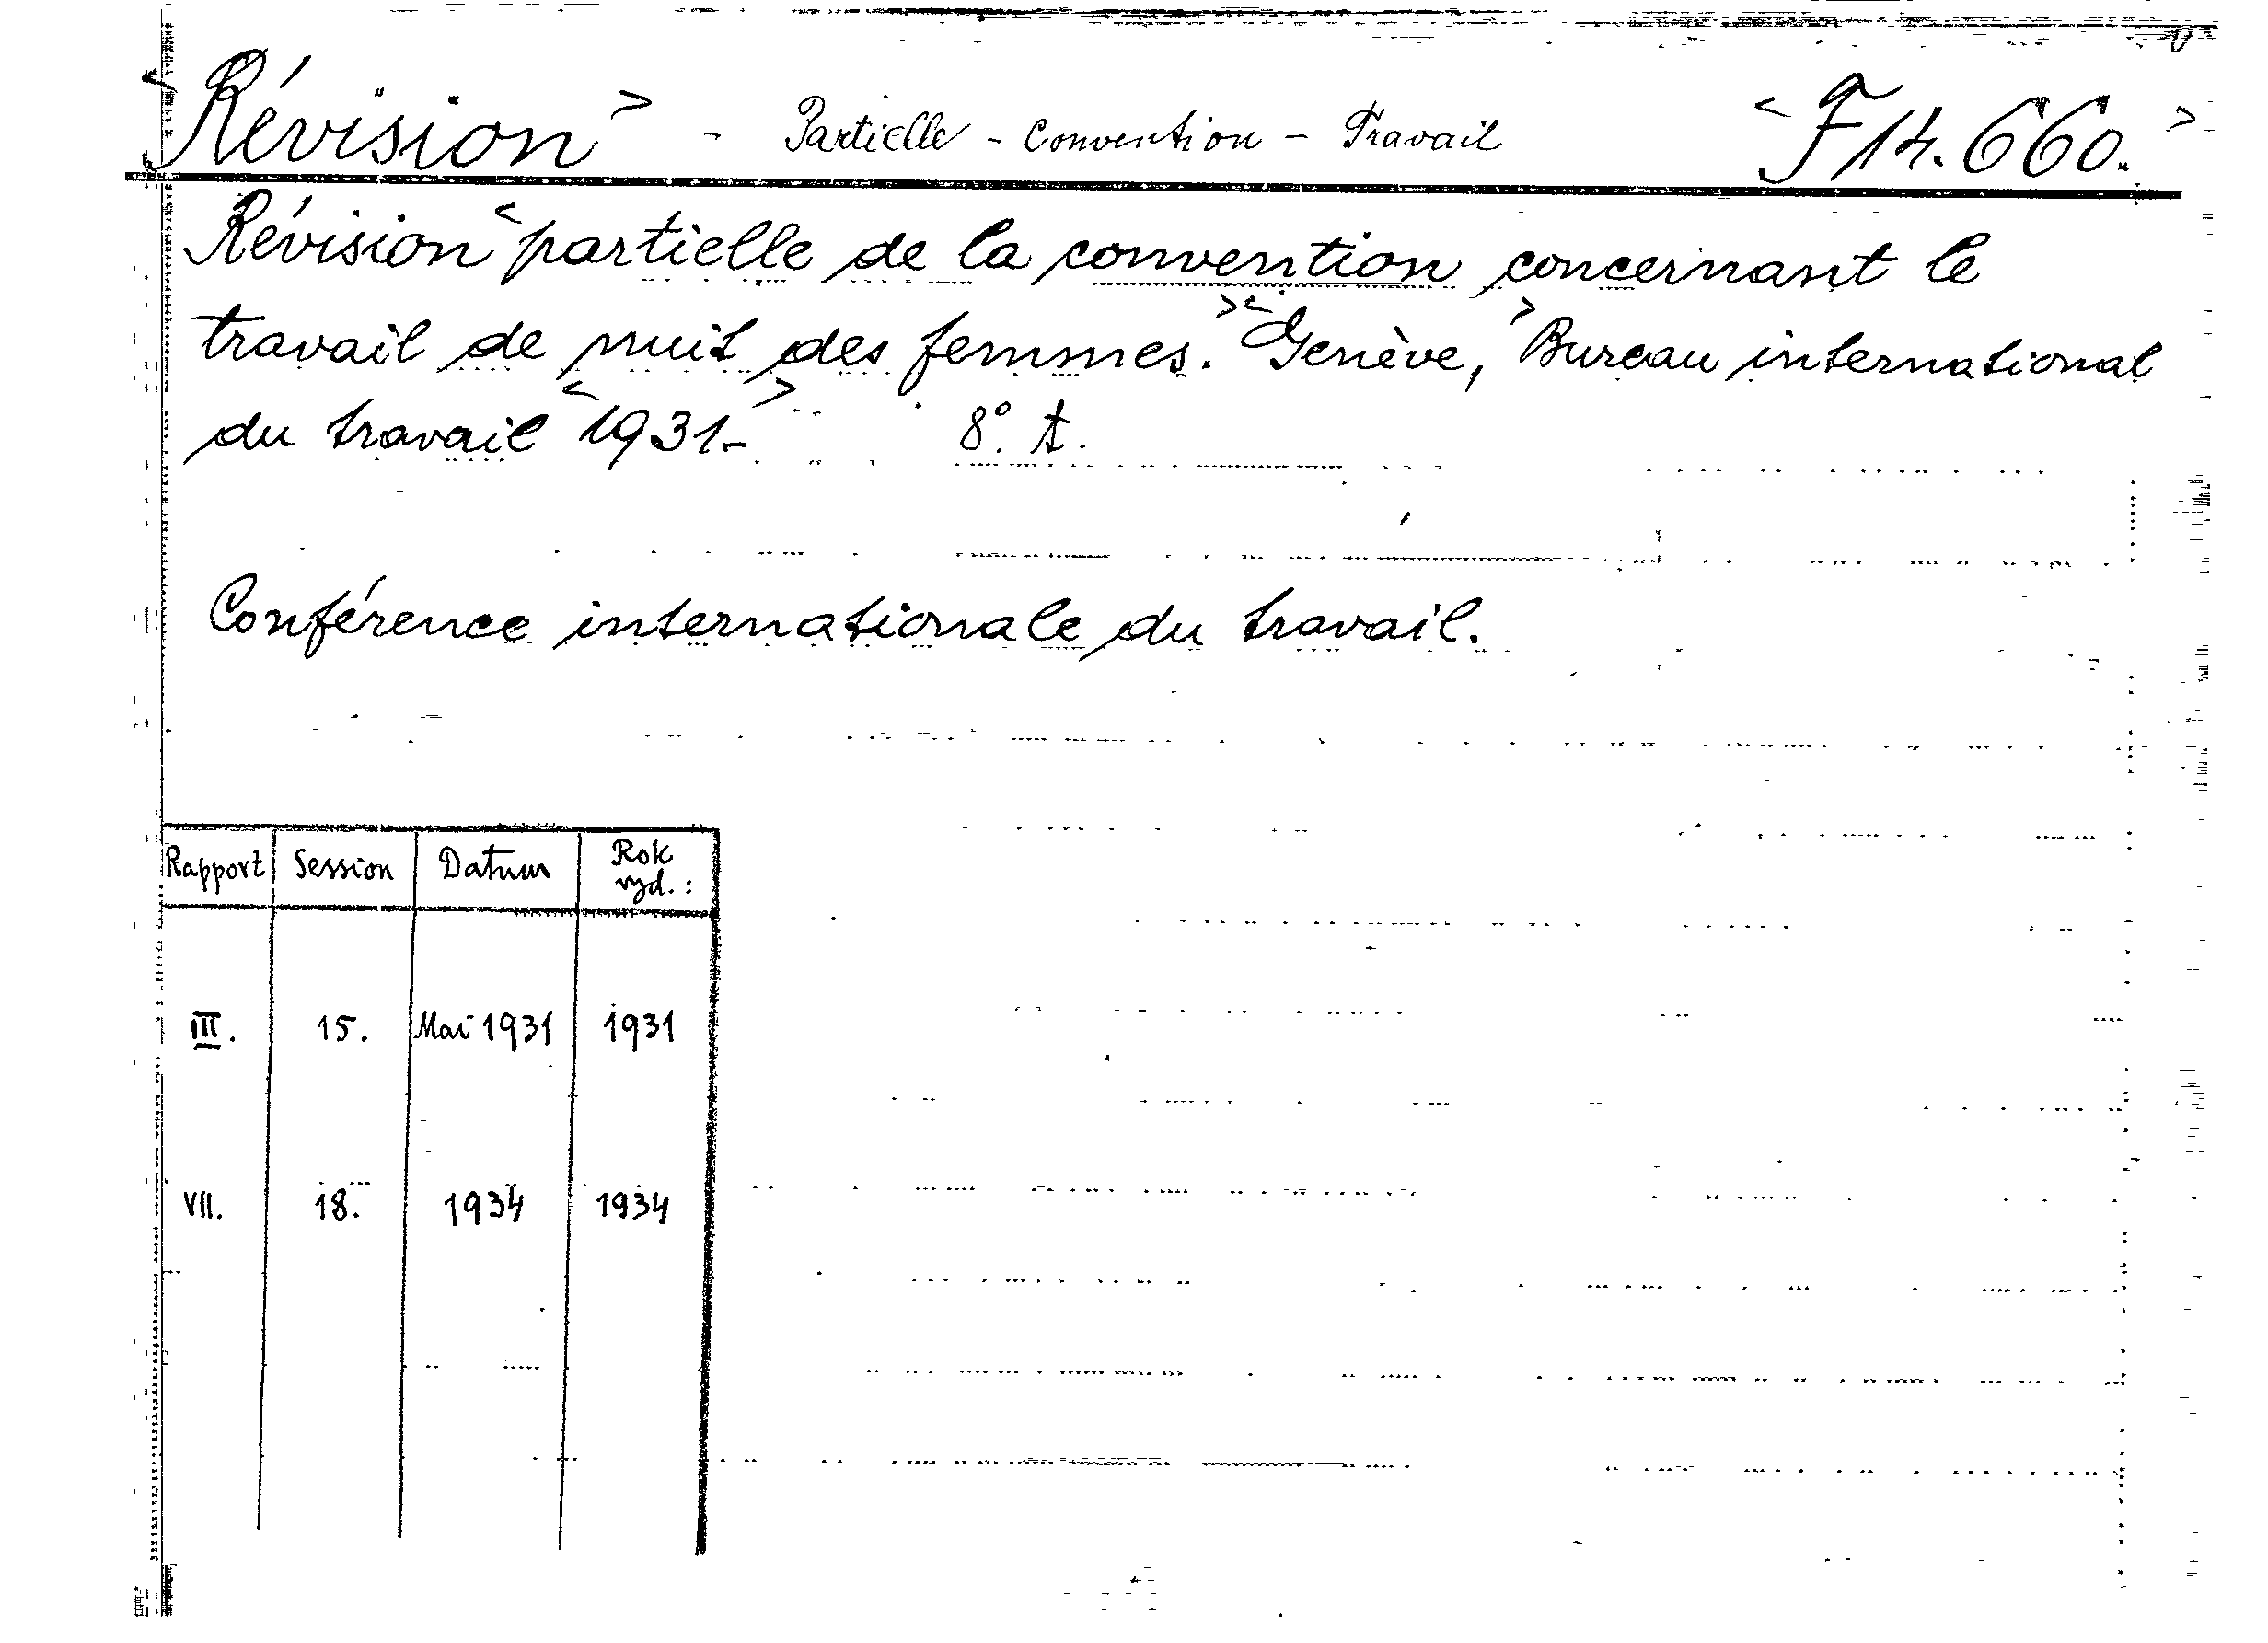 <Révision> - Partielle - Convention - Travail <F 14.660.>
Révision <partielle de la convention concernant le
travail de nuit des femmes.> <Genève,> Bureau international
du travail <1931-> 8°. A.
Conférence internationale du travail.
Rapport Session Datum Rok vyd.:
III. 15. Mai 1931 1931
VII. 18. 1934 1934